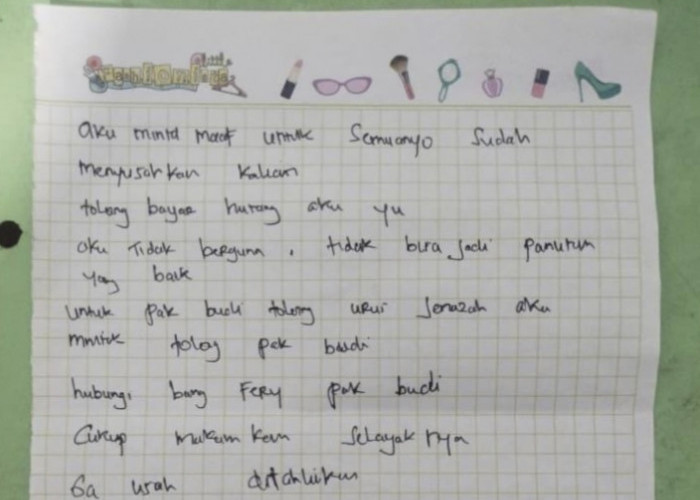 aku minta maaf untuk semuanyo sudah
menyusahkan kalian
tolong bayar hutang aku yu
aku Tidak berguna, tidak bisa jadi panutan
yang baik
untuk pak budi tolong urus Jenazah aku
mintak tolog pak budi
hubungi bang FERY pak budi
Cukup makam kan selayak nya
Ga usah